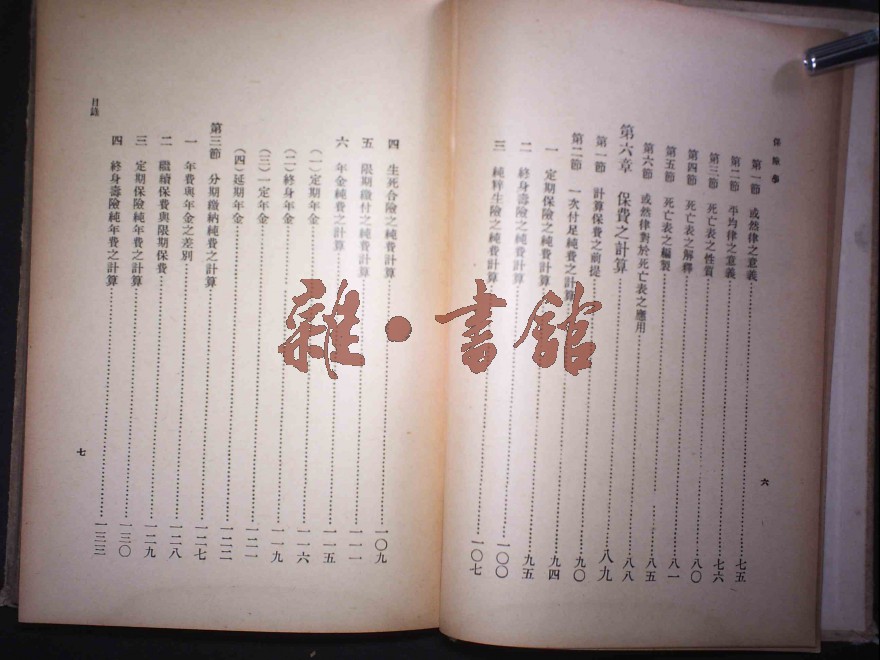 保險學
第一節 或然律之意義 七五
第二節 平均律之意義 七六
第三節 死亡表之性質 八〇
第四節 死亡表之解釋 八一
第五節 死亡表之編製 八五
第六節 或然律對於死亡表之應用 八八
第六章 保費之計算 八九
第一節 計算保費之前提 九〇
第二節 一次付足純費之計算 九四
一 定期保險之純費計算 九五
二 終身壽險之純費計算 一〇〇
三 純粹生險之純費計算 一〇七
六
目錄
四 生死合險之純費計算 一〇九
五 限期繳付之純費計算 一一一
六 年金純費之計算 一一五
(一)定期年金 一一六
(二)終身年金 一一九
(三)一定年金 一二一
(四)延期年金 一二二
第三節 分期繳納純費之計算 一二七
一 年費與年金之差別 一二八
二 繼續保費與限期保費 一二九
三 定期保險純年費之計算 一三〇
四 終身壽險純年費之計算 一三三
七
雜·書館